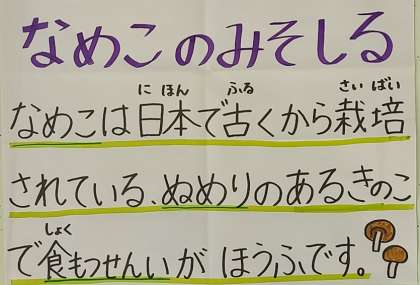 なめこのみそしる
なめこは日本で古くから栽培
されている、ぬめりのあるきのこ
で食もつせんいが ほうふです。
にほん ふる さいばい
しょく